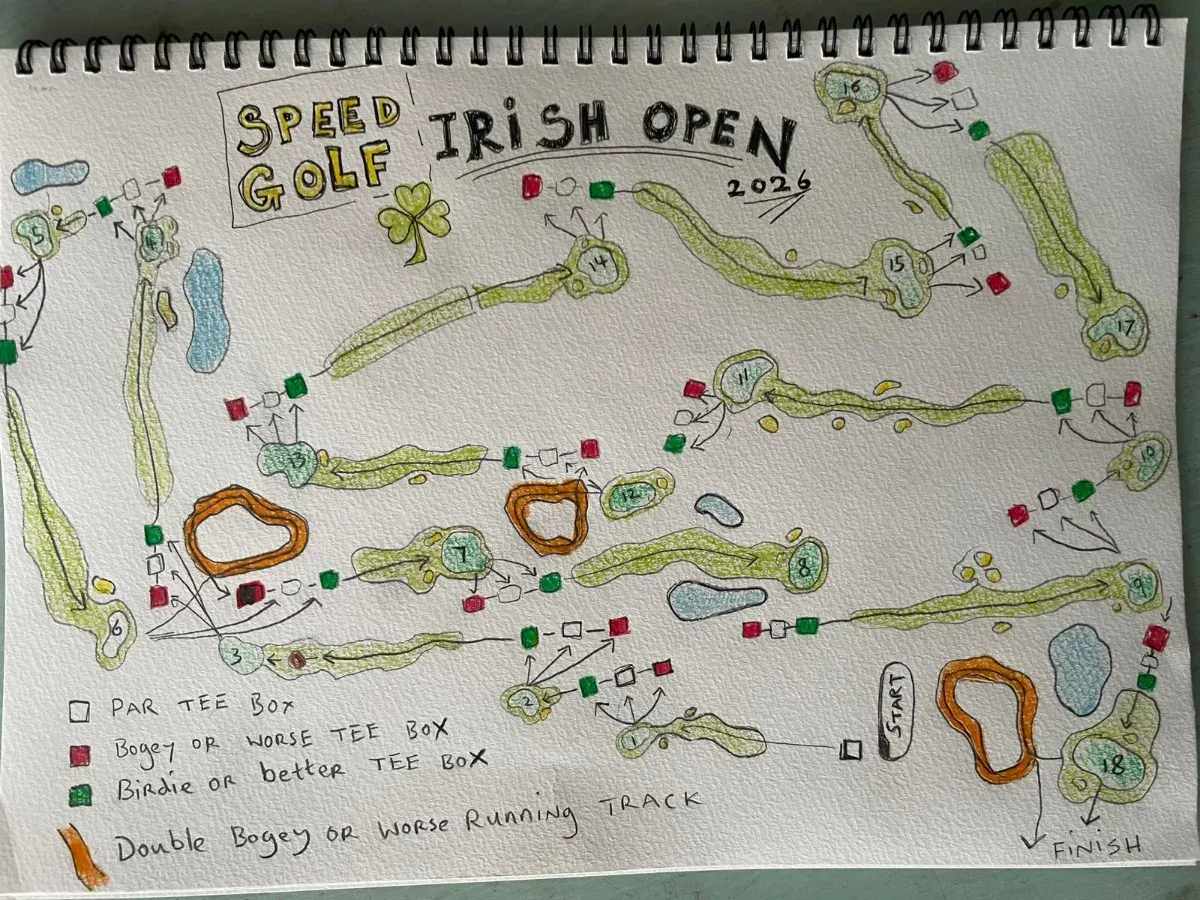 SPEED
GOLF
IRiSH OPEN
2026
16
5
4
14
15
17
11
13
12
10
7
8
6
3
9
2
1
START
18
PAR TEE BOX
BOGEY OR WORSE TEE BOX
BiRdiE OR better TEE BOX
Double Bogey OR WORSE RUNNING TRACK
FiNiSH